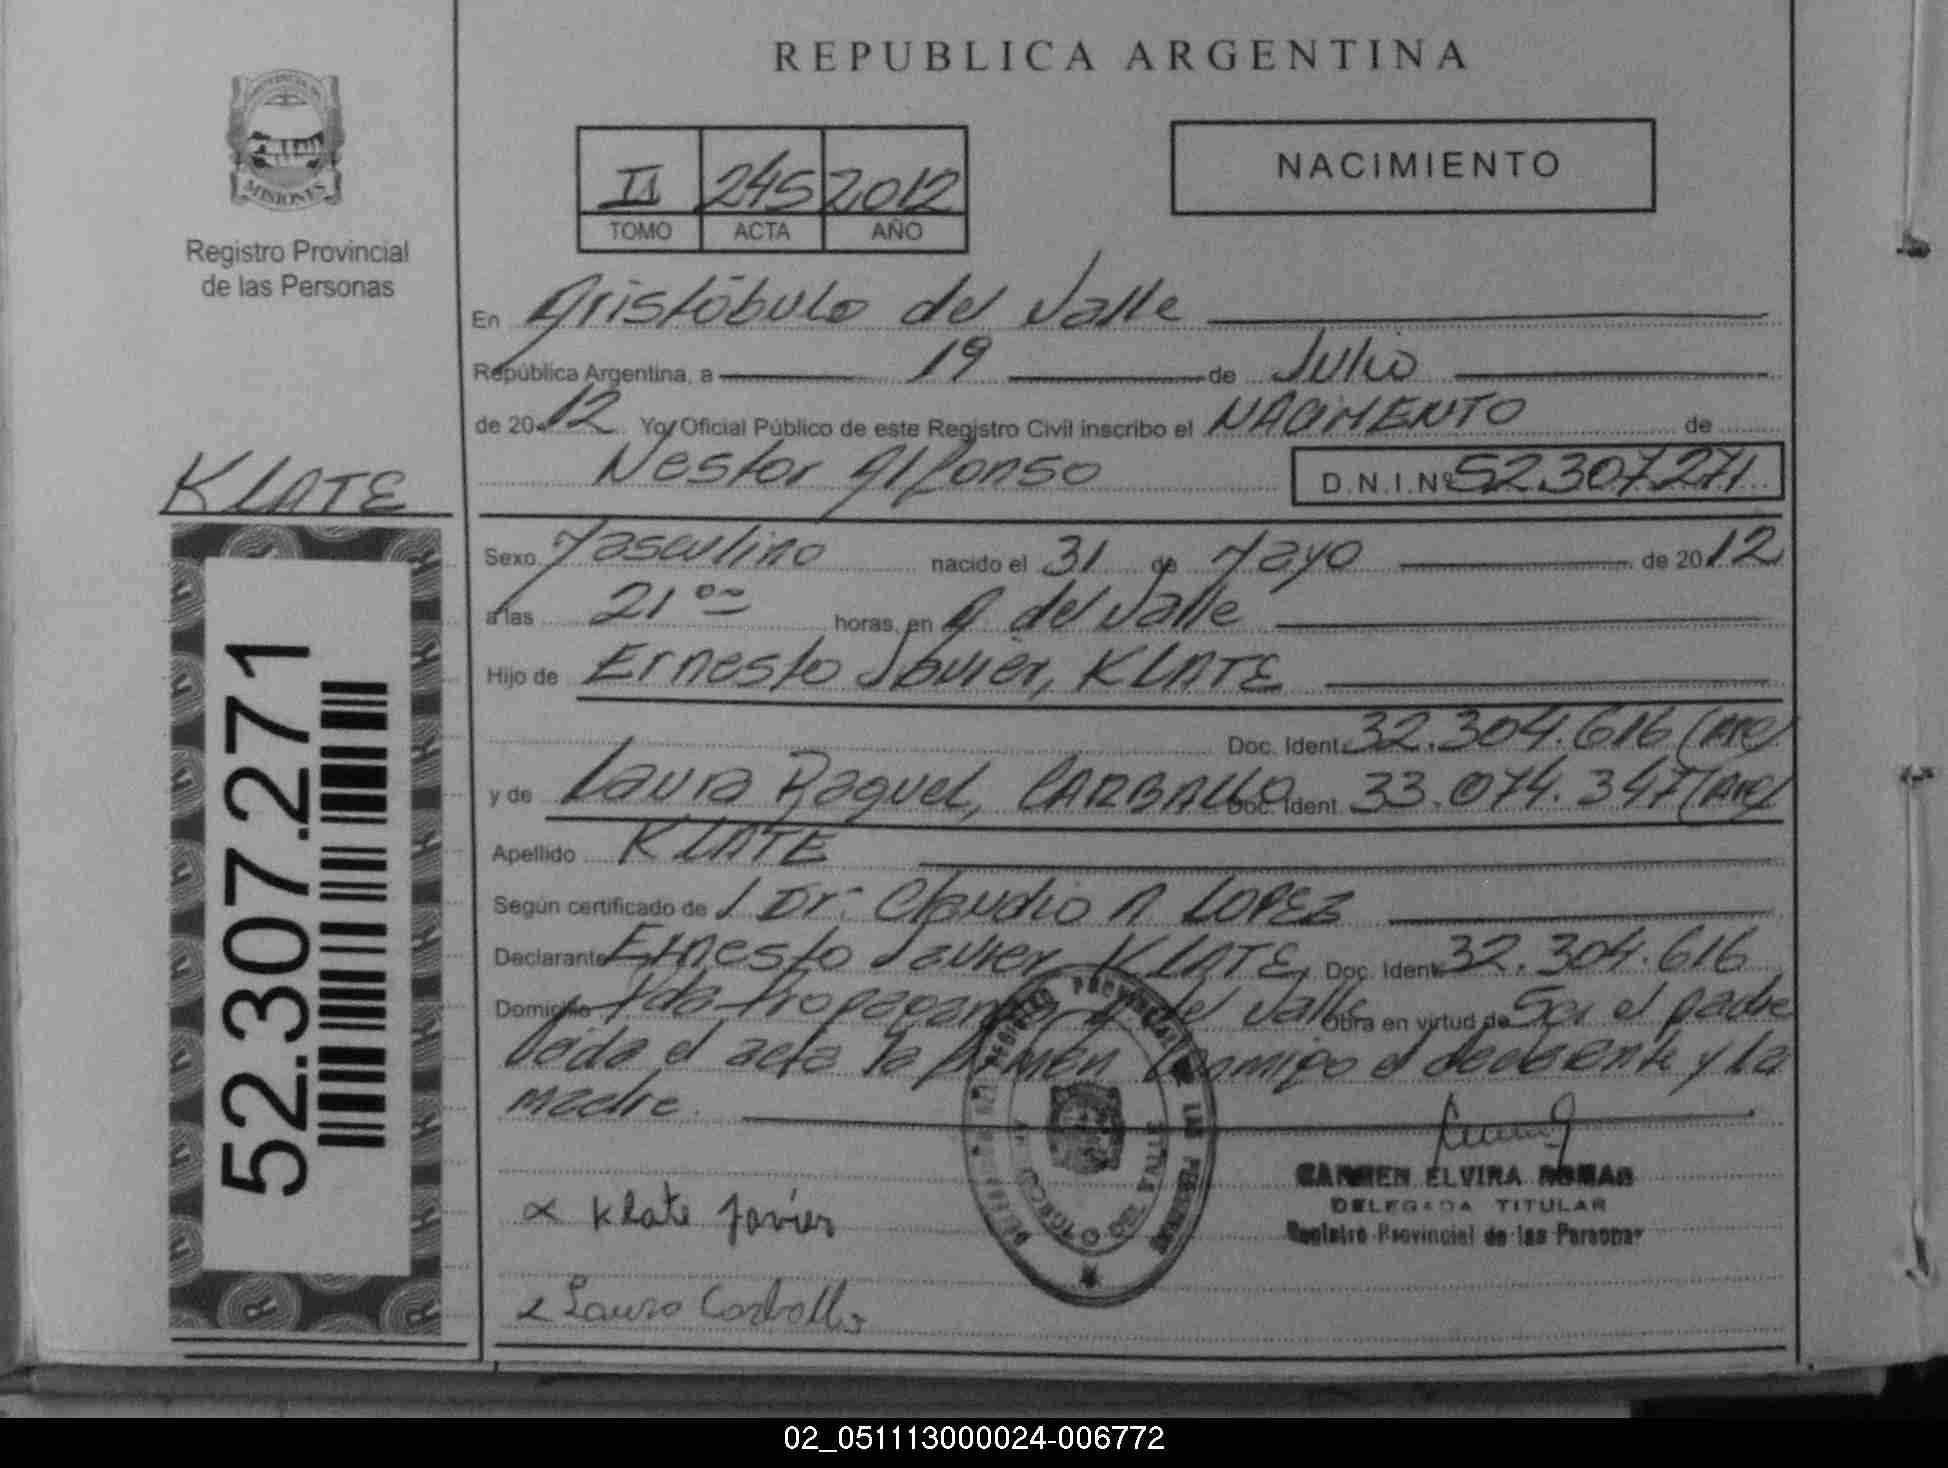 REPUBLICA ARGENTINA
PROVINCIA DE MISIONES
Registro Provincial
de las Personas
II 245 2012
TOMO ACTA AÑO
NACIMIENTO
En Aristóbulo del Valle
República Argentina, a 19 de Julio
de 2012 Yo, Oficial Público de este Registro Civil inscribo el NACIMIENTO de
KLATE
Nestor Alfonso D.N.I.Nº 52.307.271
Sexo Masculino nacido el 31 de Mayo de 2012
a las 21 00 horas, en A del Valle
Hijo de Ernesto Javier, KLATE
Doc. Ident. 32.304.616 (ARG)
y de Laura Raquel, CARBALLO Doc. Ident. 33.074.347 (ARG)
Apellido KLATE
Según certificado de / Dr. Claudio A. LOPEZ
Declarante Ernesto Javier KLATE, Doc. Ident. 32.304.616
Domicilio Pda Propaganda A del Valle Obra en virtud de Ser el padre
leida el acta la firman conmigo el declarante y la
madre.
52.307.271
REGISTRO PROVINCIAL DE LAS PERSONAS
ARISTOBULO DEL VALLE
CARMEN ELVIRA ROMAO
DELEGADA TITULAR
Registro Provincial de las Personas
x Klate Javier
x Laura Carballo
02_051113000024-006772